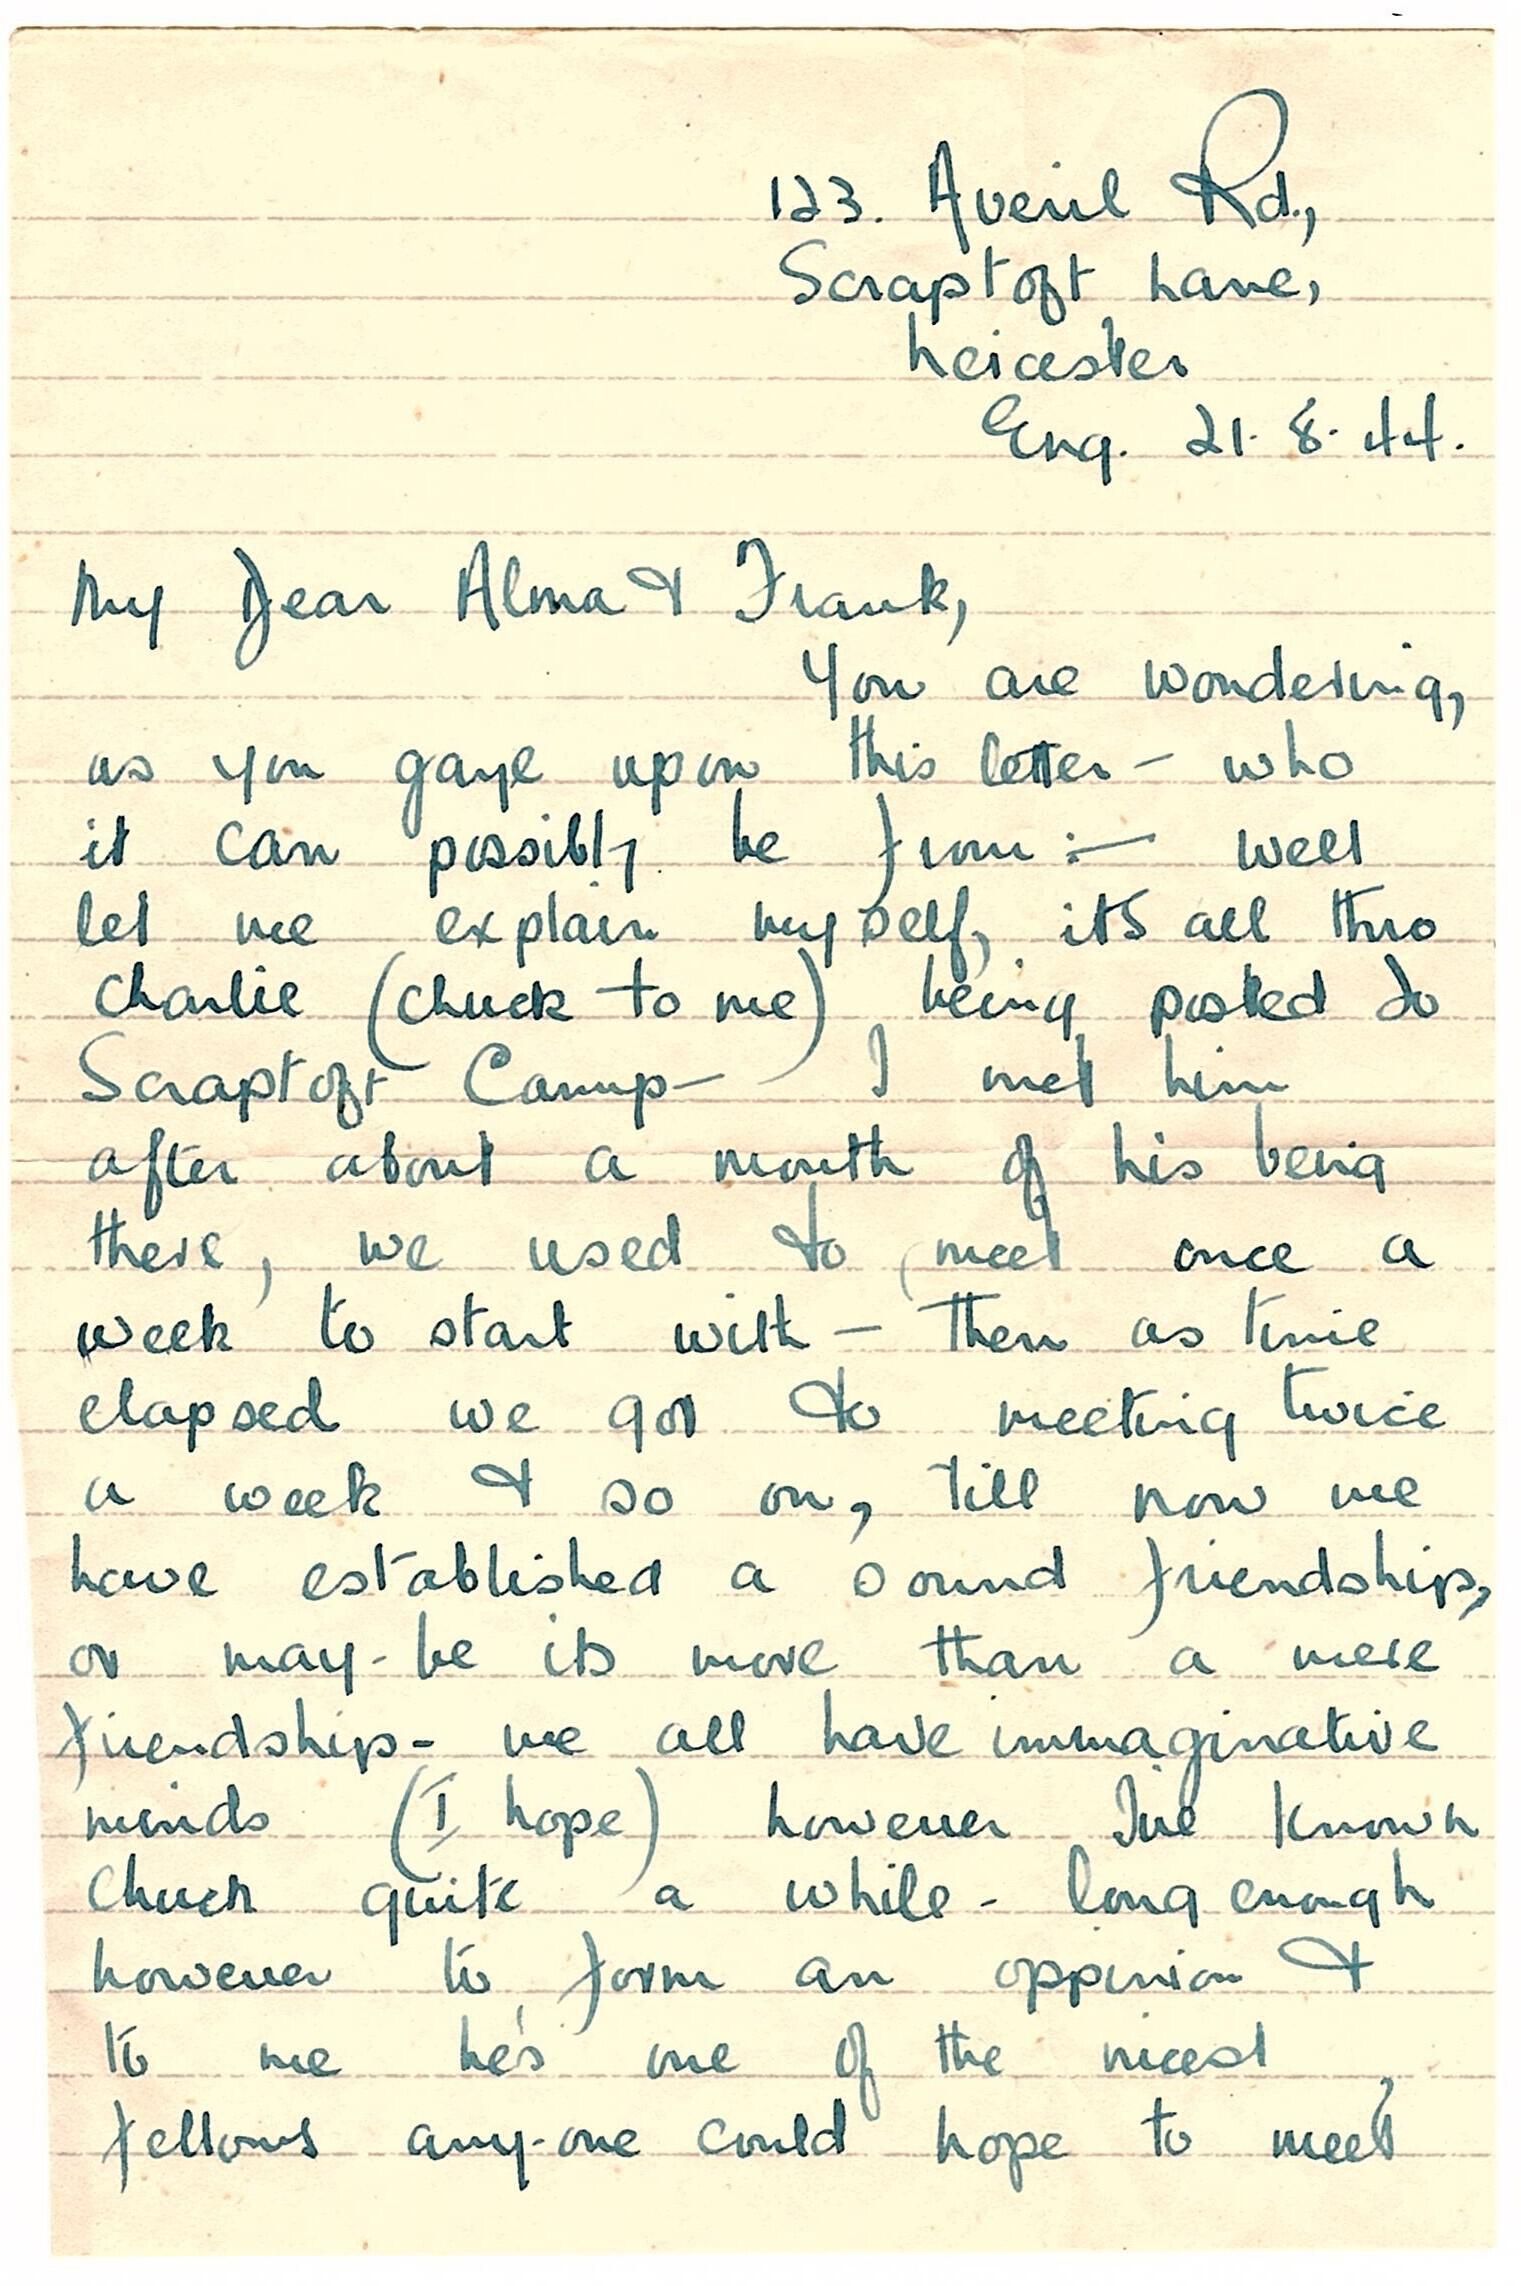 123. Averil Rd.,
Scraptoft Lane,
Leicester
Eng. 21. 8. 44.
My Dear Alma & Frank,
You are wondering,
as you gaze upon this letter - who
it can possibly be from :- well
let me explain myself, it's all thro
Charlie (Chuck to me) being posted to
Scraptoft Camp - I met him
after about a month of his being
there, we used to meet once a
week to start with - then as time
elapsed we got to meeting twice
a week & so on, till now we
have established a sound friendship,
or may-be its more than a mere
friendship - we all have immaginative
minds (I hope) however I've known
Chuck quite a while - long enough
however to form an oppinion &
to me he's one of the nicest
fellows any-one could hope to meet,